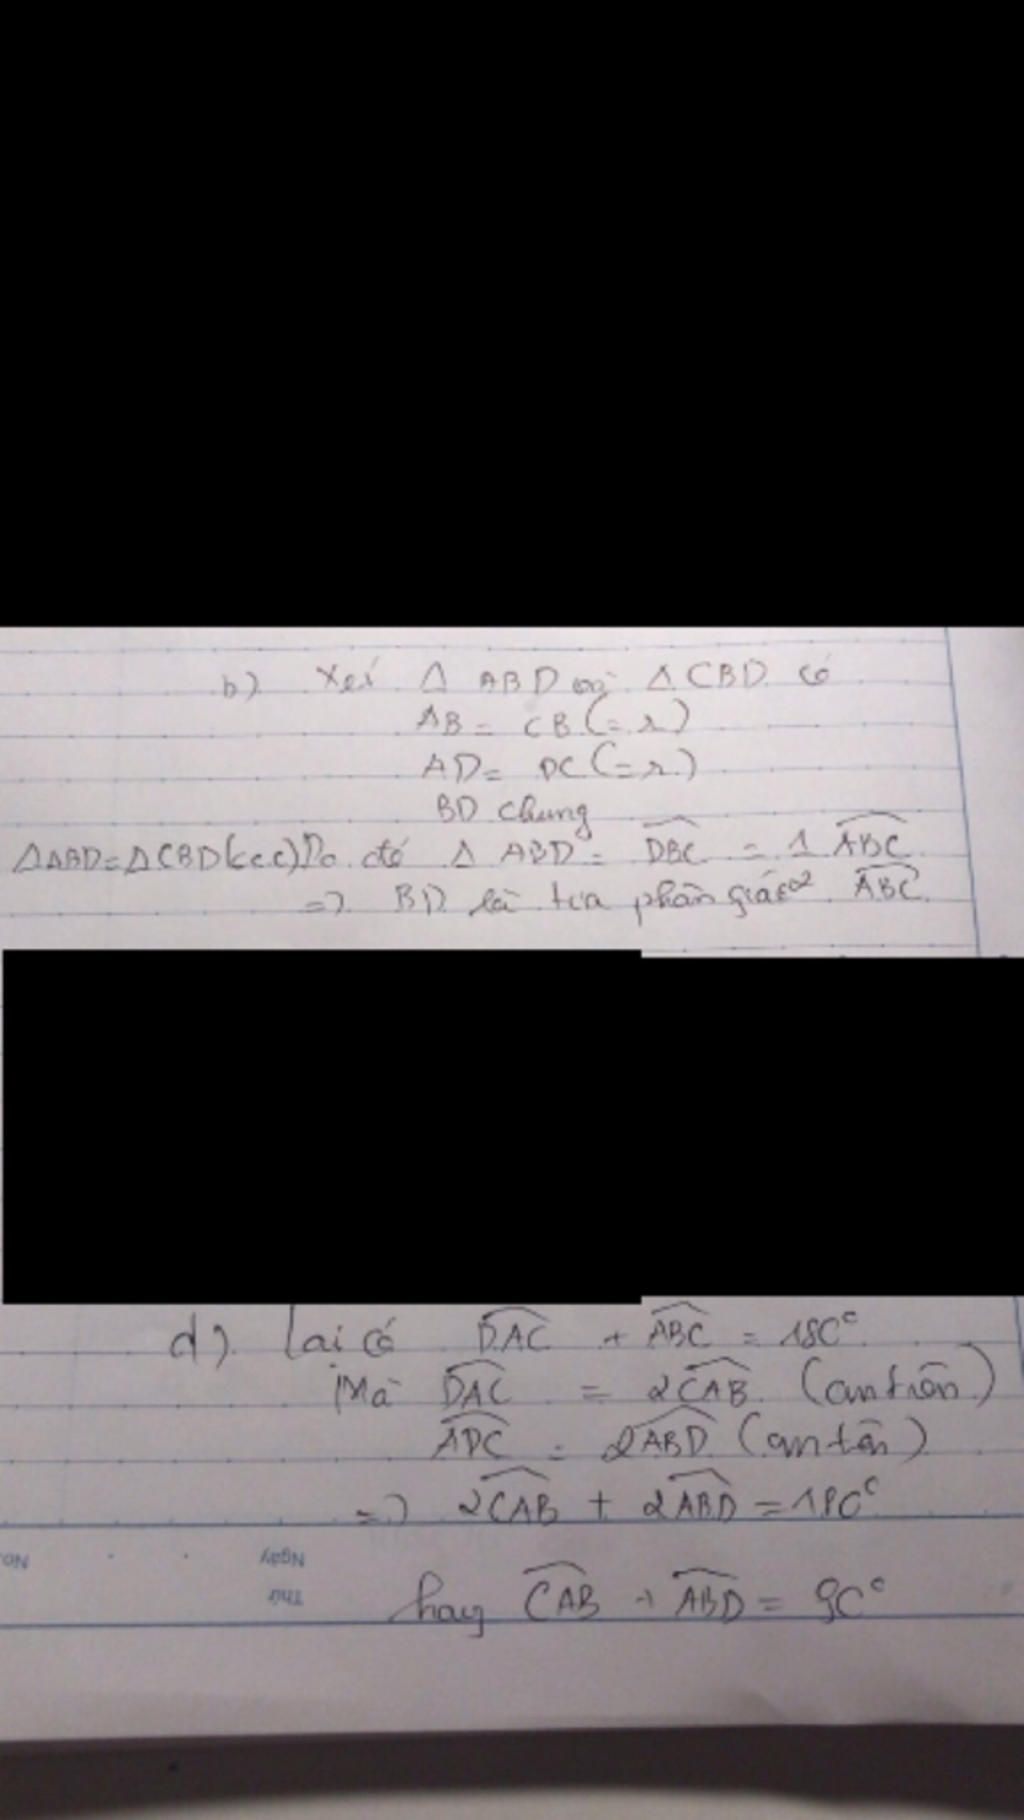 b) Xét Δ ABD và Δ CBD có
AB = CB (= r)
AD = DC (= r)
BD chung
ΔABD = ΔCBD (c.c.c) Do đó Δ ABD = DBC = 1 ABC
=> BD là tia phân giác 2 ABC
d) Lại có DAC + ABC = 180°
Mà DAC = 2CAB (cm trên)
ADC = 2ABD (cm tên)
=> 2CAB + 2ABD = 180°
No. Ngày
Thứ
hay CAB + ABD = 90°